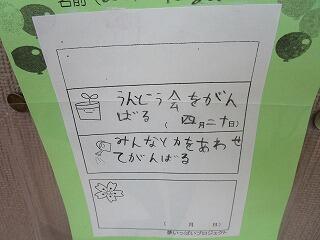 うんどう会をがん
ばる
（四月二十日）
みんなと力をあわせ
てがんばる
（　月　日）
夢いっぱいプロジェクト